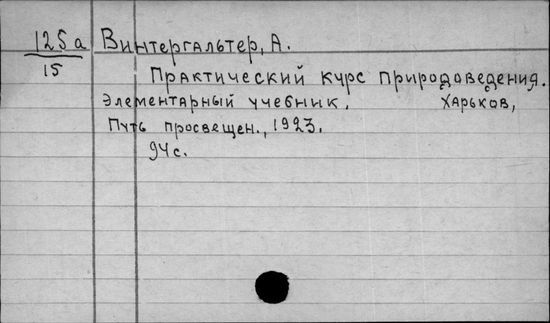 125а Винтергальтер, А.
15
Практический курс природоведения.
Элементарный учебник. Харьков,
Путь просвещен., 1923.
94с.